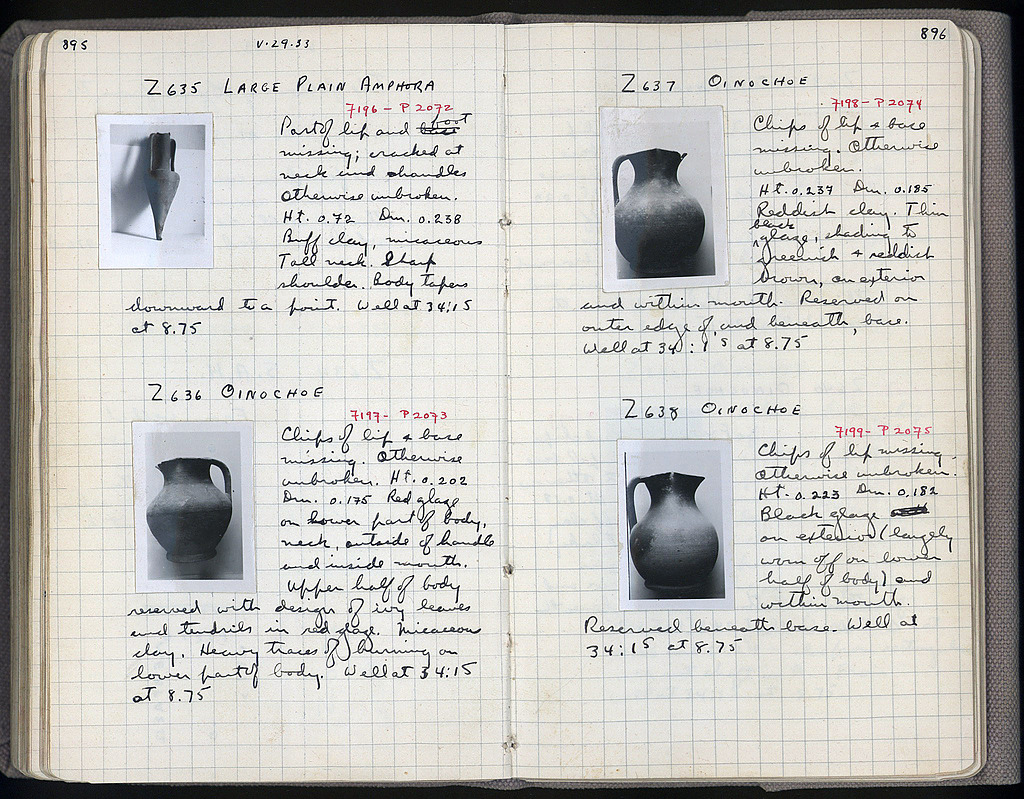 895
V·29·33
Z635 LARGE PLAIN AMPHORA
7196 - P 2072
Part of lip and foot
missing; cracked at
neck and shandles
Otherwise unbroken.
Ht. 0.72 Dm. 0.238
Buff clay, micaceous
Tall neck. Sharp
shoulder. Body tapers
downward to a point. Well at 34:15
at 8.75
Z636 OINOCHOE
7197 - P 2073
Chips of lip & base
missing. Otherwise
unbroken. Ht. 0.202
Dm. 0.175 Red glaze
on lower part of body,
neck, outside of handle
and inside mouth.
Upper half of body
reserved with design of ivy leaves
and tendrils in red glaze. Micaceous
clay. Heavy traces of burning on
lower part of body. Well at 34:15
at 8.75
896
Z637 OINOCHOE
7198 - P 2074
Chips of lip & base
missing. Otherwise
unbroken.
Ht. 0.237 Dm. 0.185
Reddish clay. Thin
black
glaze, shading to
greenish & reddish
brown, on exterior
and within mouth. Reserved on
outer edge of, and beneath, base.
Well at 34:15 at 8.75
Z638 OINOCHOE
7199 - P 2075
Chips of lip missing.
Otherwise unbroken.
Ht. 0.223 Dm. 0.182
Black glaze
on exterior (largely
worn off on lower
half of body) and
within mouth.
Reserved beneath base. Well at
34:15 at 8.75